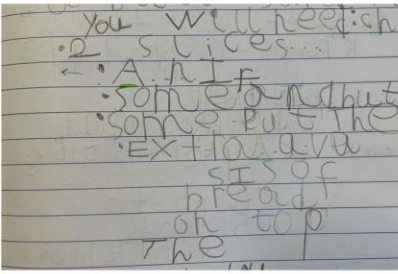 You will need: ch
• 2 slices...
← • A nIF
• someandbut
• some but the
• EXtra ava
sIs of
bread
on top
The